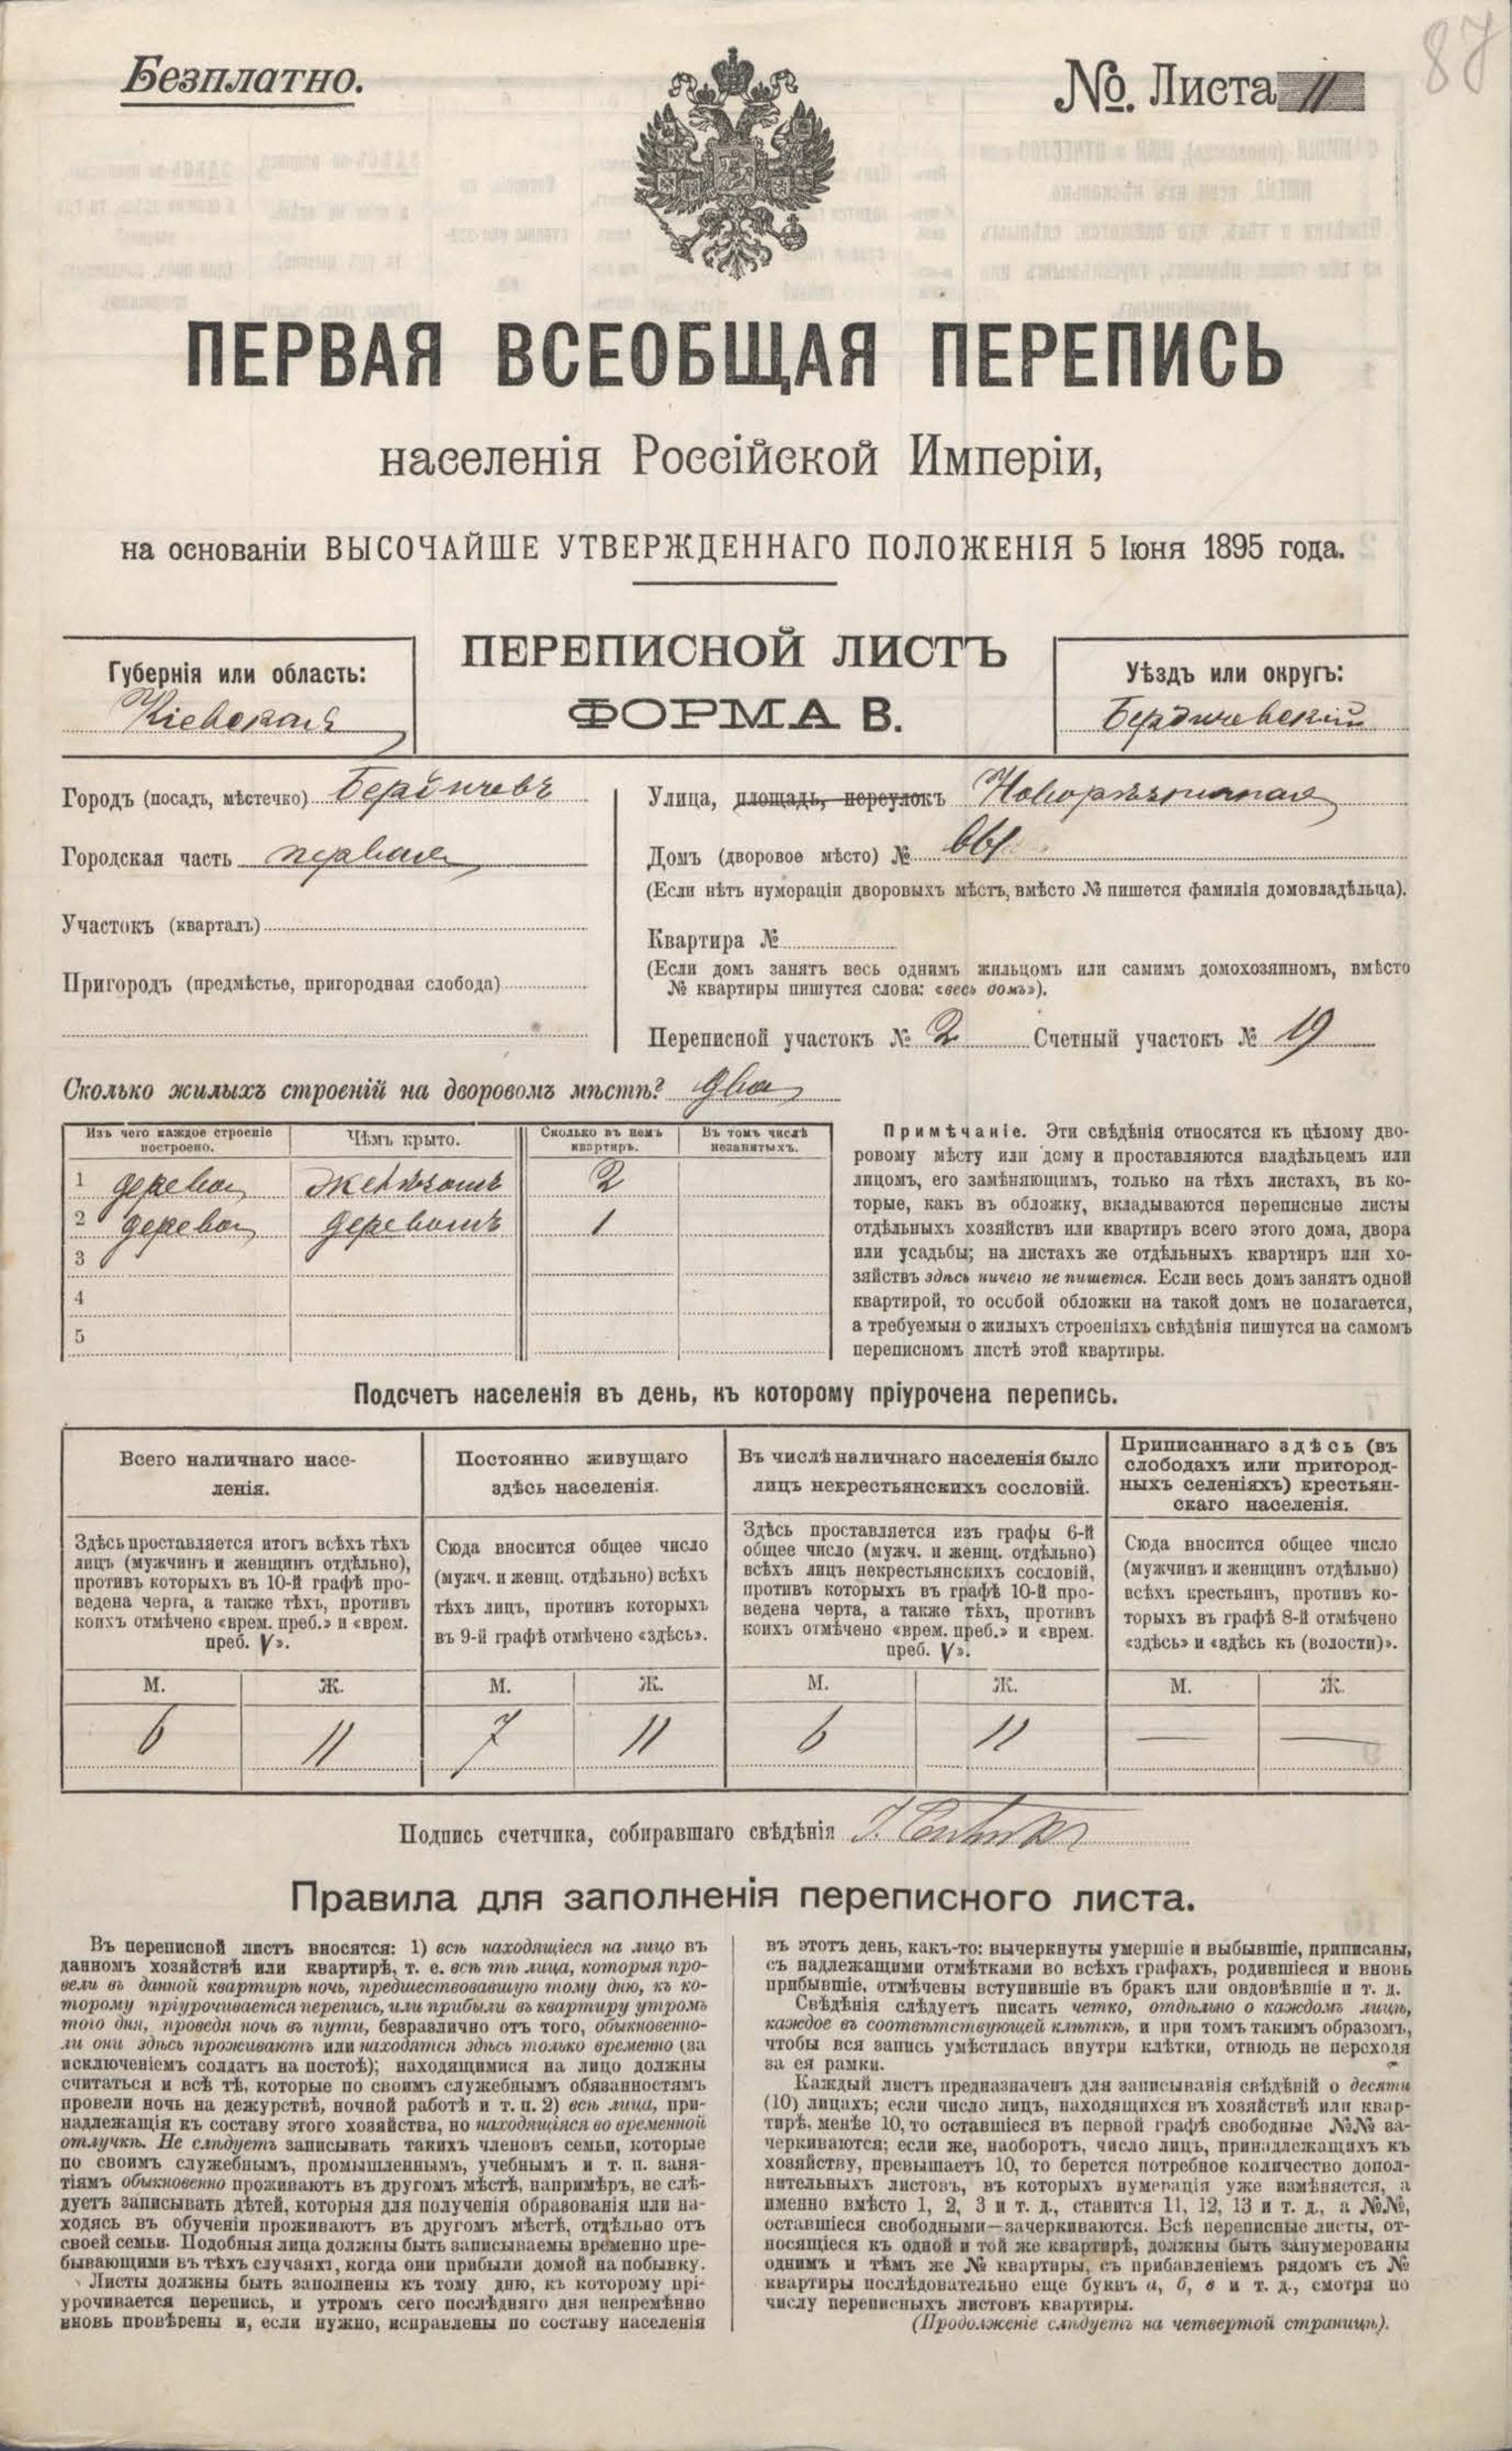 87
Безплатно.
№. Листа 11
ПЕРВАЯ ВСЕОБЩАЯ ПЕРЕПИСЬ
населенія Россійской Имперіи,
на основаніи ВЫСОЧАЙШЕ УТВЕРЖДЕННАГО ПОЛОЖЕНІЯ 5 Іюня 1895 года.
Губернія или область:
Кіевская
ПЕРЕПИСНОЙ ЛИСТЪ
ФОРМА В.
Уѣздъ или округъ:
Бердичевскій
Городъ (посадъ, мѣстечко) Бердичевъ
Городская часть первая
Участокъ (кварталъ)
Пригородъ (предмѣстье, пригородная слобода)
Улица, площадь, переулокъ
Домъ (дворовое мѣсто) №
(Если нѣтъ нумераціи дворовыхъ мѣстъ, вмѣсто № пишется фамилія домовладѣльца).
Квартира №
(Если домъ занятъ весь однимъ жильцомъ или самимъ домохозяиномъ, вмѣсто
№ квартиры пишутся слова: «весь домъ»).
Переписной участокъ № 2 Счетный участокъ № 19
Сколько жилыхъ строеній на дворовомъ мѣстѣ? два
Изъ чего каждое строеніе построено. Чѣмъ крыто. Сколько въ немъ квартиръ. Въ томъ числѣ незанятыхъ.
1 дерева желѣзомъ 2
2 дерева деревомъ 1
3
4
5
Примѣчаніе. Эти свѣдѣнія относятся къ цѣлому дво-
ровому мѣсту или дому и проставляются владѣльцемъ или
лицомъ, его замѣняющимъ, только на тѣхъ листахъ, въ ко-
торые, какъ въ обложку, вкладываются переписные листы
отдѣльныхъ хозяйствъ или квартиръ всего этого дома, двора
или усадьбы; на листахъ же отдѣльныхъ квартиръ или хо-
зяйствъ здѣсь ничего не пишется. Если весь домъ занятъ одной
квартирой, то особой обложки на такой домъ не полагается,
а требуемыя о жилыхъ строеніяхъ свѣдѣнія пишутся на самомъ
переписномъ листѣ этой квартиры.
Подсчетъ населенія въ день, къ которому пріурочена перепись.
Всего наличнаго насе-
ленія.
Здѣсь проставляется итогъ всѣхъ тѣхъ
лицъ (мужчинъ и женщинъ отдѣльно),
противъ которыхъ въ 10-й графѣ про-
ведена черта, а также тѣхъ, противъ
коихъ отмѣчено «врем. преб.» и «врем.
преб. V».
М. Ж.
6 11
Постоянно живущаго
здѣсь населенія.
Сюда вносится общее число
(мужч. и женщ. отдѣльно) всѣхъ
тѣхъ лицъ, противъ которыхъ
въ 9-й графѣ отмѣчено «здѣсь».
М. Ж.
7 11
Въ числѣ наличнаго населенія было
лицъ некрестьянскихъ сословій.
Здѣсь проставляется изъ графы 6-й
общее число (мужч. и женщ. отдѣльно)
всѣхъ лицъ некрестьянскихъ сословій,
противъ которыхъ въ графѣ 10-й про-
ведена черта, а также тѣхъ, противъ
коихъ отмѣчено «врем. преб.» и «врем.
преб. V».
М. Ж.
6 11
Приписаннаго здѣсь (въ
слободахъ или пригород-
ныхъ селеніяхъ) крестьян-
скаго населенія.
Сюда вносится общее число
(мужчинъ и женщинъ отдѣльно)
всѣхъ крестьянъ, противъ ко-
торыхъ въ графѣ 8-й отмѣчено
«здѣсь» и «здѣсь къ (волости)».
М. Ж.
— —
Подпись счетчика, собиравшаго свѣдѣнія
Правила для заполненія переписного листа.
Въ переписной листъ вносятся: 1) всѣ находящіеся на лицо въ
данномъ хозяйствѣ или квартирѣ, т. е. всѣ тѣ лица, которыя про-
вели въ данной квартирѣ ночь, предшествовавшую тому дню, къ ко-
торому пріурочивается перепись, или прибыли въ квартиру утромъ
того дня, проведя ночь въ пути, безразлично отъ того, обыкновенно-
ли они здѣсь проживаютъ или находятся здѣсь только временно (за
исключеніемъ солдатъ на постоѣ); находящимися на лицо должны
считаться и всѣ тѣ, которые по своимъ служебнымъ обязанностямъ
провели ночь на дежурствѣ, ночной работѣ и т. п. 2) всѣ лица, при-
надлежащія къ составу этого хозяйства, но находящіяся во временной
отлучкѣ. Не слѣдуетъ записывать такихъ членовъ семьи, которые
по своимъ служебнымъ, промышленнымъ, учебнымъ и т. п. заня-
тіямъ обыкновенно проживаютъ въ другомъ мѣстѣ, напримѣръ, не слѣ-
дуетъ записывать дѣтей, которыя для полученія образованія или на-
ходясь въ обученіи проживаютъ въ другомъ мѣстѣ, отдѣльно отъ
своей семьи. Подобныя лица должны быть записываемы временно пре-
бывающими въ тѣхъ случаяхъ, когда они прибыли домой на побывку.
Листы должны быть заполнены къ тому дню, къ которому прі-
урочивается перепись, и утромъ сего послѣдняго дня непремѣнно
вновь провѣрены и, если нужно, исправлены по составу населенія
въ этотъ день, какъ-то: вычеркнуты умершіе и выбывшіе, приписаны,
съ надлежащими отмѣтками во всѣхъ графахъ, родившіеся и вновь
прибывшіе, отмѣчены вступившіе въ бракъ или овдовѣвшіе и т. д.
Свѣдѣнія слѣдуетъ писать четко, отдѣльно о каждомъ лицѣ,
каждое въ соотвѣтствующей клѣткѣ, и при томъ такимъ образомъ,
чтобы вся запись умѣстилась внутри клѣтки, отнюдь не переходя
за ея рамки.
Каждый листъ предназначенъ для записыванія свѣдѣній о десяти
(10) лицахъ; если число лицъ, находящихся въ хозяйствѣ или квар-
тирѣ, менѣе 10, то оставшіеся въ первой графѣ свободные №№ за-
черкиваются; если же, наоборотъ, число лицъ, принадлежащихъ къ
хозяйству, превышаетъ 10, то берется потребное количество допол-
нительныхъ листовъ, въ которыхъ нумерація уже измѣняется, а
именно вмѣсто 1, 2, 3 и т. д., ставится 11, 12, 13 и т. д., а №№,
оставшіеся свободными—зачеркиваются. Всѣ переписные листы, от-
носящіеся къ одной и той же квартирѣ, должны быть занумерованы
однимъ и тѣмъ же № квартиры, съ прибавленіемъ рядомъ съ №
квартиры послѣдовательно еще буквъ а, б, в и т. д., смотря по
числу переписныхъ листовъ квартиры.
(Продолженіе слѣдуетъ на четвертой страницѣ).